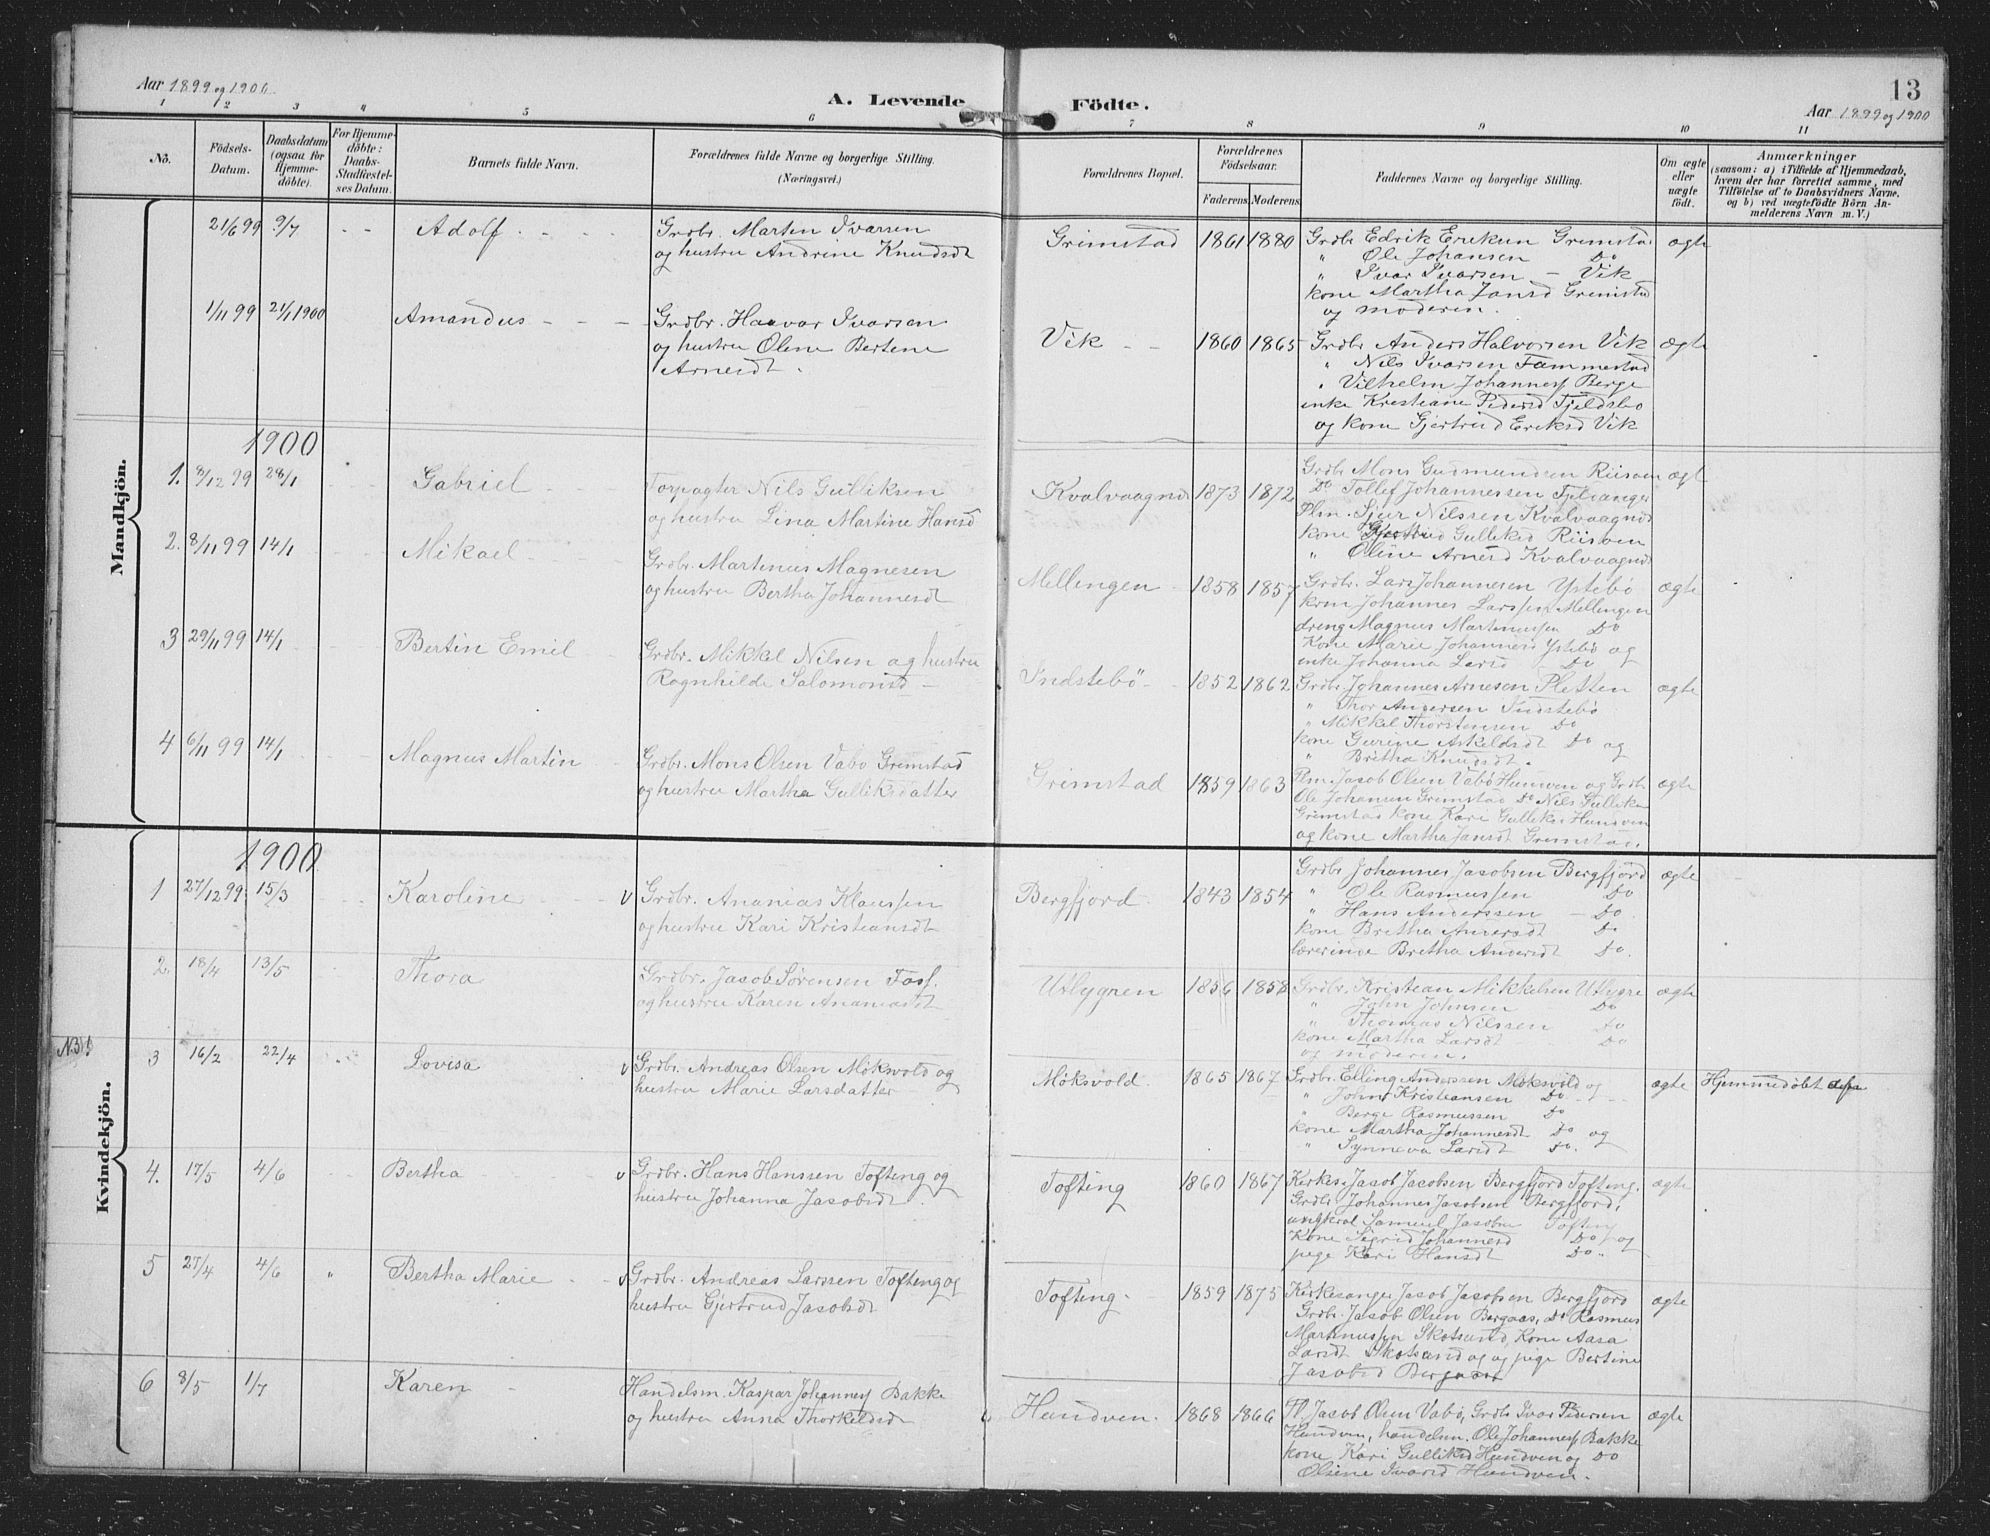 Aar 1899 og 1900.
A. Levende Födte.
13
Aar 1899 og 1900
1 2 3 4 5 6 7 8 9 10 11
No.
Födsels-Datum.
Daabsdatum (ogsaa for Hjemme-döbte).
For Hjemme-döbte: Daabs-Stadfæstel-ses Datum.
Barnets fulde Navn.
Forældrenes fulde Navne og borgerlige Stilling.
(Næringsvei.)
Forældrenes Bopæl.
Forældrenes Födselsaar.
Faderens. Moderens.
Faddernes Navne og borgerlige Stilling.
Om ægte eller uægte födt.
Anmærkninger
(saasom: a) i Tilfælde af Hjemmedaab, hvem der har forrettet samme, med Tilföielse af to Daabsvidners Navne, og b) ved uægtefödte Börn An-melderens Navn m. V.)
Mandkjön.
21/6 99 9/7 Adolf Grdbr. Marten Ivarsen
og hustru Andrine Knudsdt
Grimstad 1861 1880 Grdbr Edrik Eriksen Grimstad ægte
" Ole Johansen Do
" Ivar Ivarsen - Vik
kone Martha Jansd Grimstad
og moderen.
1/11 99 21/1 1900 Amandus Grdbr. Haavar Ivarsen
og hustru Oline Bertene
Arnesdt.
Vik 1860 1865 Grdbr Anders Halvorsen Vik ægte
" Nils Ivarsen Fammestad
" Vilhelm Johanness Berge
enke Kristiane Pedersd Fjeldsbø
og kone Gjertrud Eriksd Vik
1900
1. 8/12 99 28/1 Gabriel Forpagter Nils Gulliksen
og hustru Lina Martine Hansd
Kvalvaagnes 1873 1872 Grdbr Mons Gudmundsen Riisøen ægt
Do Tollef Johannessen Fjelsanger
Plm. Sjur Nilssen Kvalvaagnes
kone Gjertrud Gulliksd Riisøen
" Oline Arnesd Kvalvaagnes
2. 8/11 99 14/1 Mikael Grdbr. Martinus Magnesen
og hustru Bertha Johannesdt
Mellingen 1858 1857 Grdbr. Lars Johannesen Ystebø ægte
Johannes Larssen Mellingen
dreng Magnus Martinussen Do
Kone Marie Johannesd Ystebø og
enke Johanna Larsd - Do
3 29/11 99 14/1 Bertin Emil Grdbr. Mikkel Nilsen og hustru
Ragnhilde Salomonsd
Indstebö 1852 1862 Grdbr Johannes Arnesen Pletten ægte
" Thor Andersen Indstebø
" Mikkel Thorstensen Do
kone Gurine Askeldsdt Do og
" Britha Knudsdt.
4 6/11 99 14/1 Magnus Martin Grdbr. Mons Olsen Vabø Grimstad
og hustru Martha Gulliksdatter
Grimstad 1859 1863 Plm. Jacob Olsen Vabø Hundven og Grdbr ægte
Ole Johansen Grimstad Do Nils Gulliksen
Grimstad kone Kari Gulliksd Hundven
og kone Martha Jansdt Grimstad.
Kvindekjön.
1900
1 27/12 99 15/3 Karoline V Grdbr. Ananias Klaussen
og hustru Kari Kristiansdt
Bergfjord 1843 1854 Grdbr Johannes Jacobsen Bergfjord ægte
" Ole Rasmussen Do
" Hans Anderssen - Do
kone Bretha Do
lærerinde Bretha Andersdt Do.
2. 18/4 13/5 Thora Grdbr. Jacob Sørensen Foss.
og hustru Karen Ananiasdt
Utlygren 1856 1858 Grdbr. Kristian Mikkelsen Utlygre ægte
" John Johnsen Do
" Thomas Nilssen Do
kone Martha Larsdt Do
og moderen.
3 16/2 22/4 Lovisa V Grdbr. Andreas Olsen Møksvold og
hustru Marie Larsdatter
Møksvold 1865 1867 Grdbr. Elling Anderssen Møksvold og ægte Hjemmedøbt
" John Kristiansen Do
" Berge Rasmussen Do
kone Martha Johannesdt Do og
" Synneva Larsdt Do.
4. 17/5 4/6 Bertha V Grdbr. Hans Hanssen Tofting og
hustru Johanna Jacobsdt
Tofting 1860 1867 Kirkes. Jacob Jacobsen Bergfjord Tofting. ægte
Grdbr Johannes Jacobsen Bergfjord,
ungkarl Samuel Jacobsen Tofting
Kone Sigrid Johannesd Do og
pige Kari Hansdt Do.
5 27/4 4/6 " Bertha Marie V Grdbr. Andreas Larssen Tofting og
hustru Gjertrud Jacobsdt
Tofting 1859 1875 Kirkesanger Jacob Jacobsen Bergfjord ægte
Grdbr. Jacob Olsen Bergaas, Do Rasmus
Martinussen Skotsund, Kone Aasa
Larsdt Skotsund og pige Bertine
Jacobsd Bergaas
6 8/5 1/7 Karen Handelsm. Kaspar Johanness Bakke
og hustru Anna Thorkeldsdt
Hundven. 1868 1866 Jacob Olsen Vabø, Grdbr Ivar Pedersen ægte
Hundven, handelsm. Ole Johanness Bakke
kone Kari Gulliksd Hundven og Do
Olsine Ivarsd Hundven.